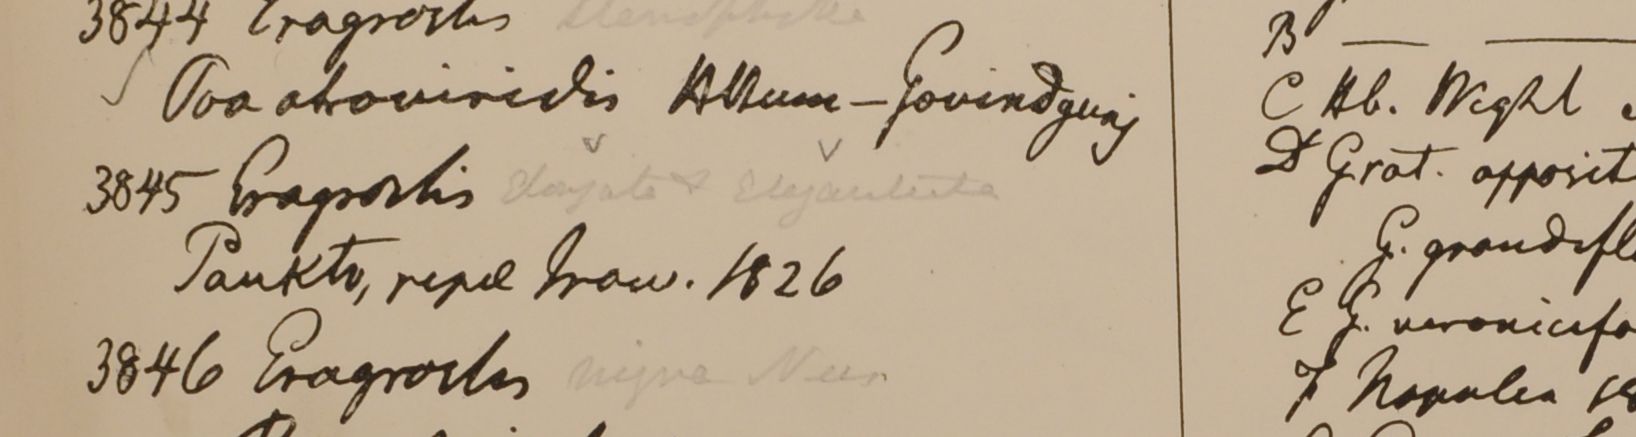 3844 Eragrostis stenophylla
Poa atroviridis HAllum — Govindgunj
3845 Eragrostis Elongata & Elegantula
Paukto, ripae Iraw. 1826
3846 Eragrostis nigra Nees
B — —
C Hb. Wight
D Grat. opposit
G. grandifl
E G. veronicifo
F Napalea 18